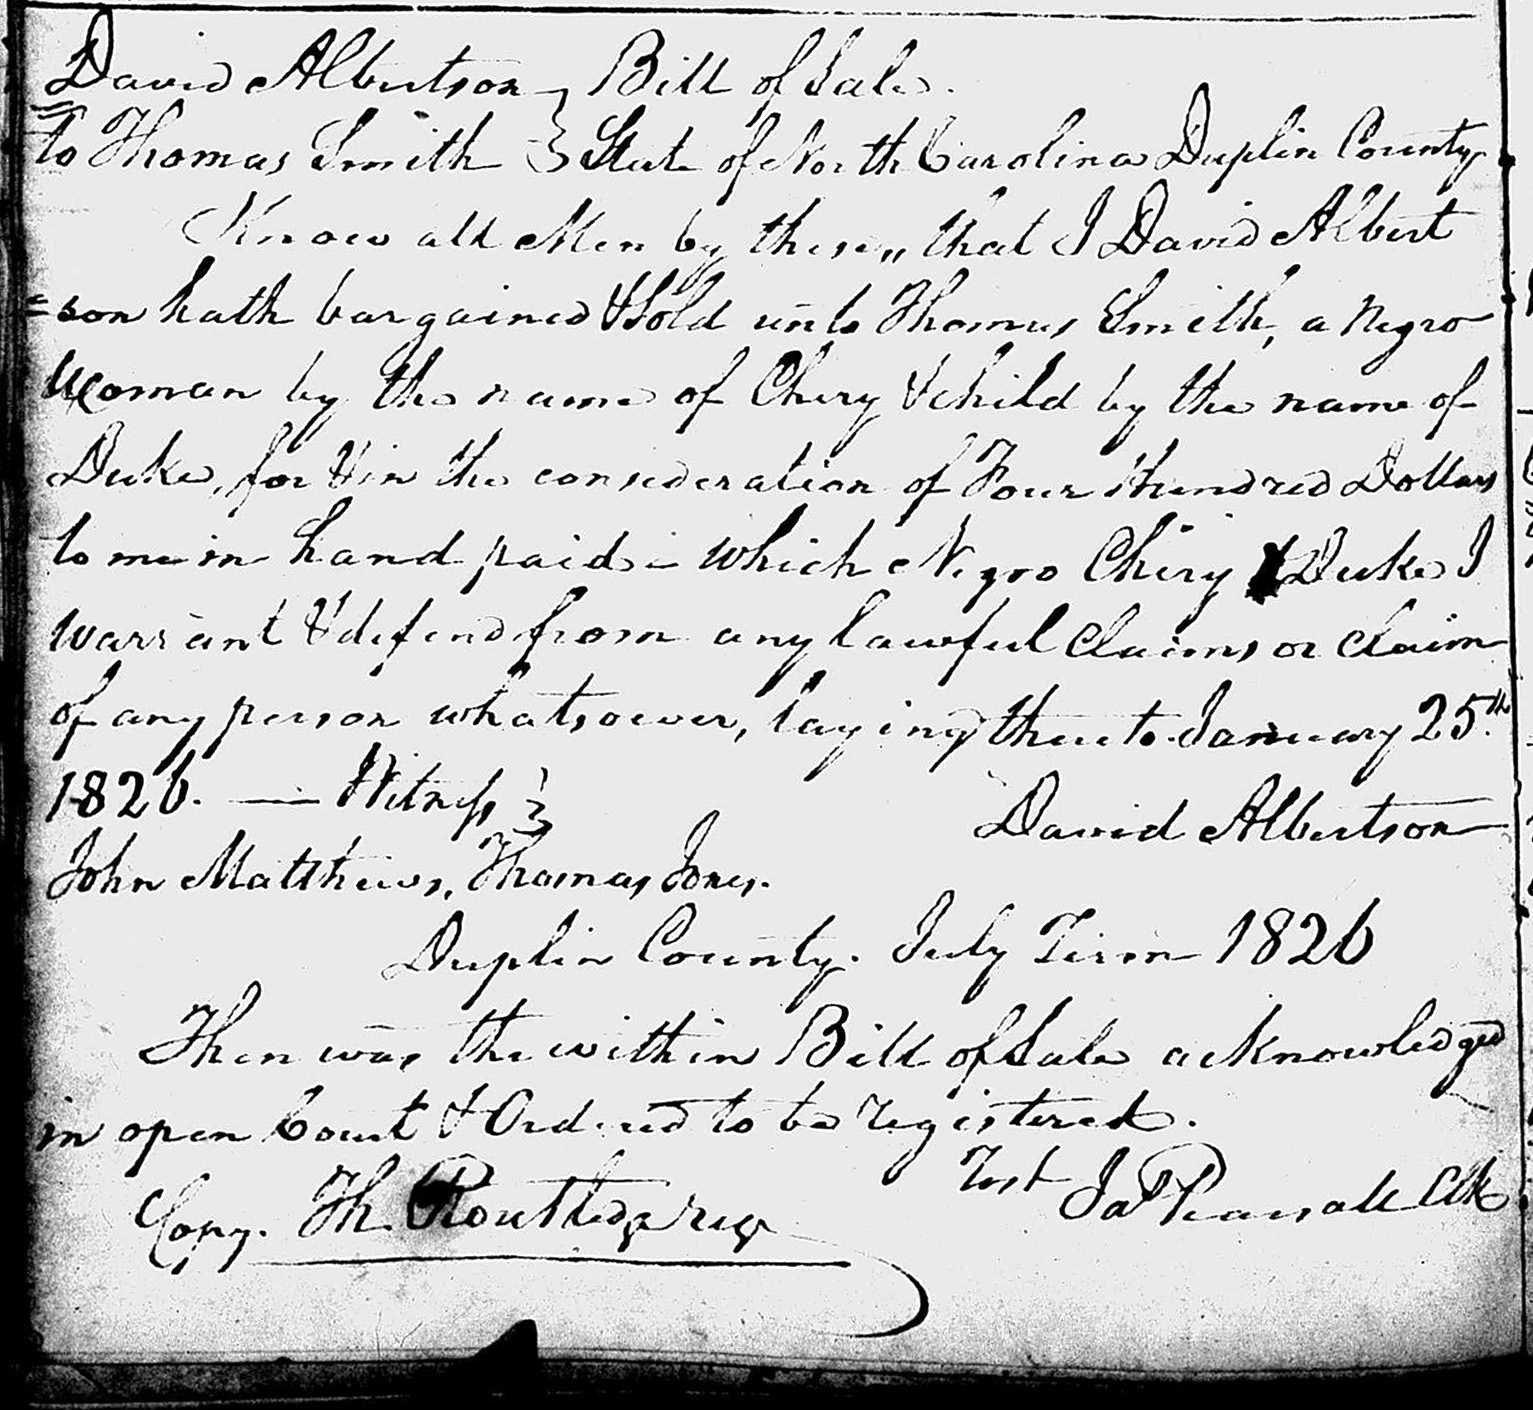 David Albertson } Bill of Sale.
to Thomas Smith } State of North Carolina Duplin County
Know all Men by these,, that I David Albert
=son hath bargained & Sold unto Thomas Smith, a Negro
Woman by the name of Chery & child by the name of
Duke, for & in the consideration of Four Hundred Dollars
to me in hand paid - which Negro Chery & Duke I
warrant & defend from any lawful Claims or Claim
of any person whatsoever, laying thereto. January 25th.
1826. — Witness }
David Albertson
John Matthews, Thomas Jones.
Duplin County. July Term 1826
Then was the within Bill of Sale acknowledged
in open Court & Ordered to be registered.
Test Jas Pearsall Clk
Copy. Th. Routledge reg